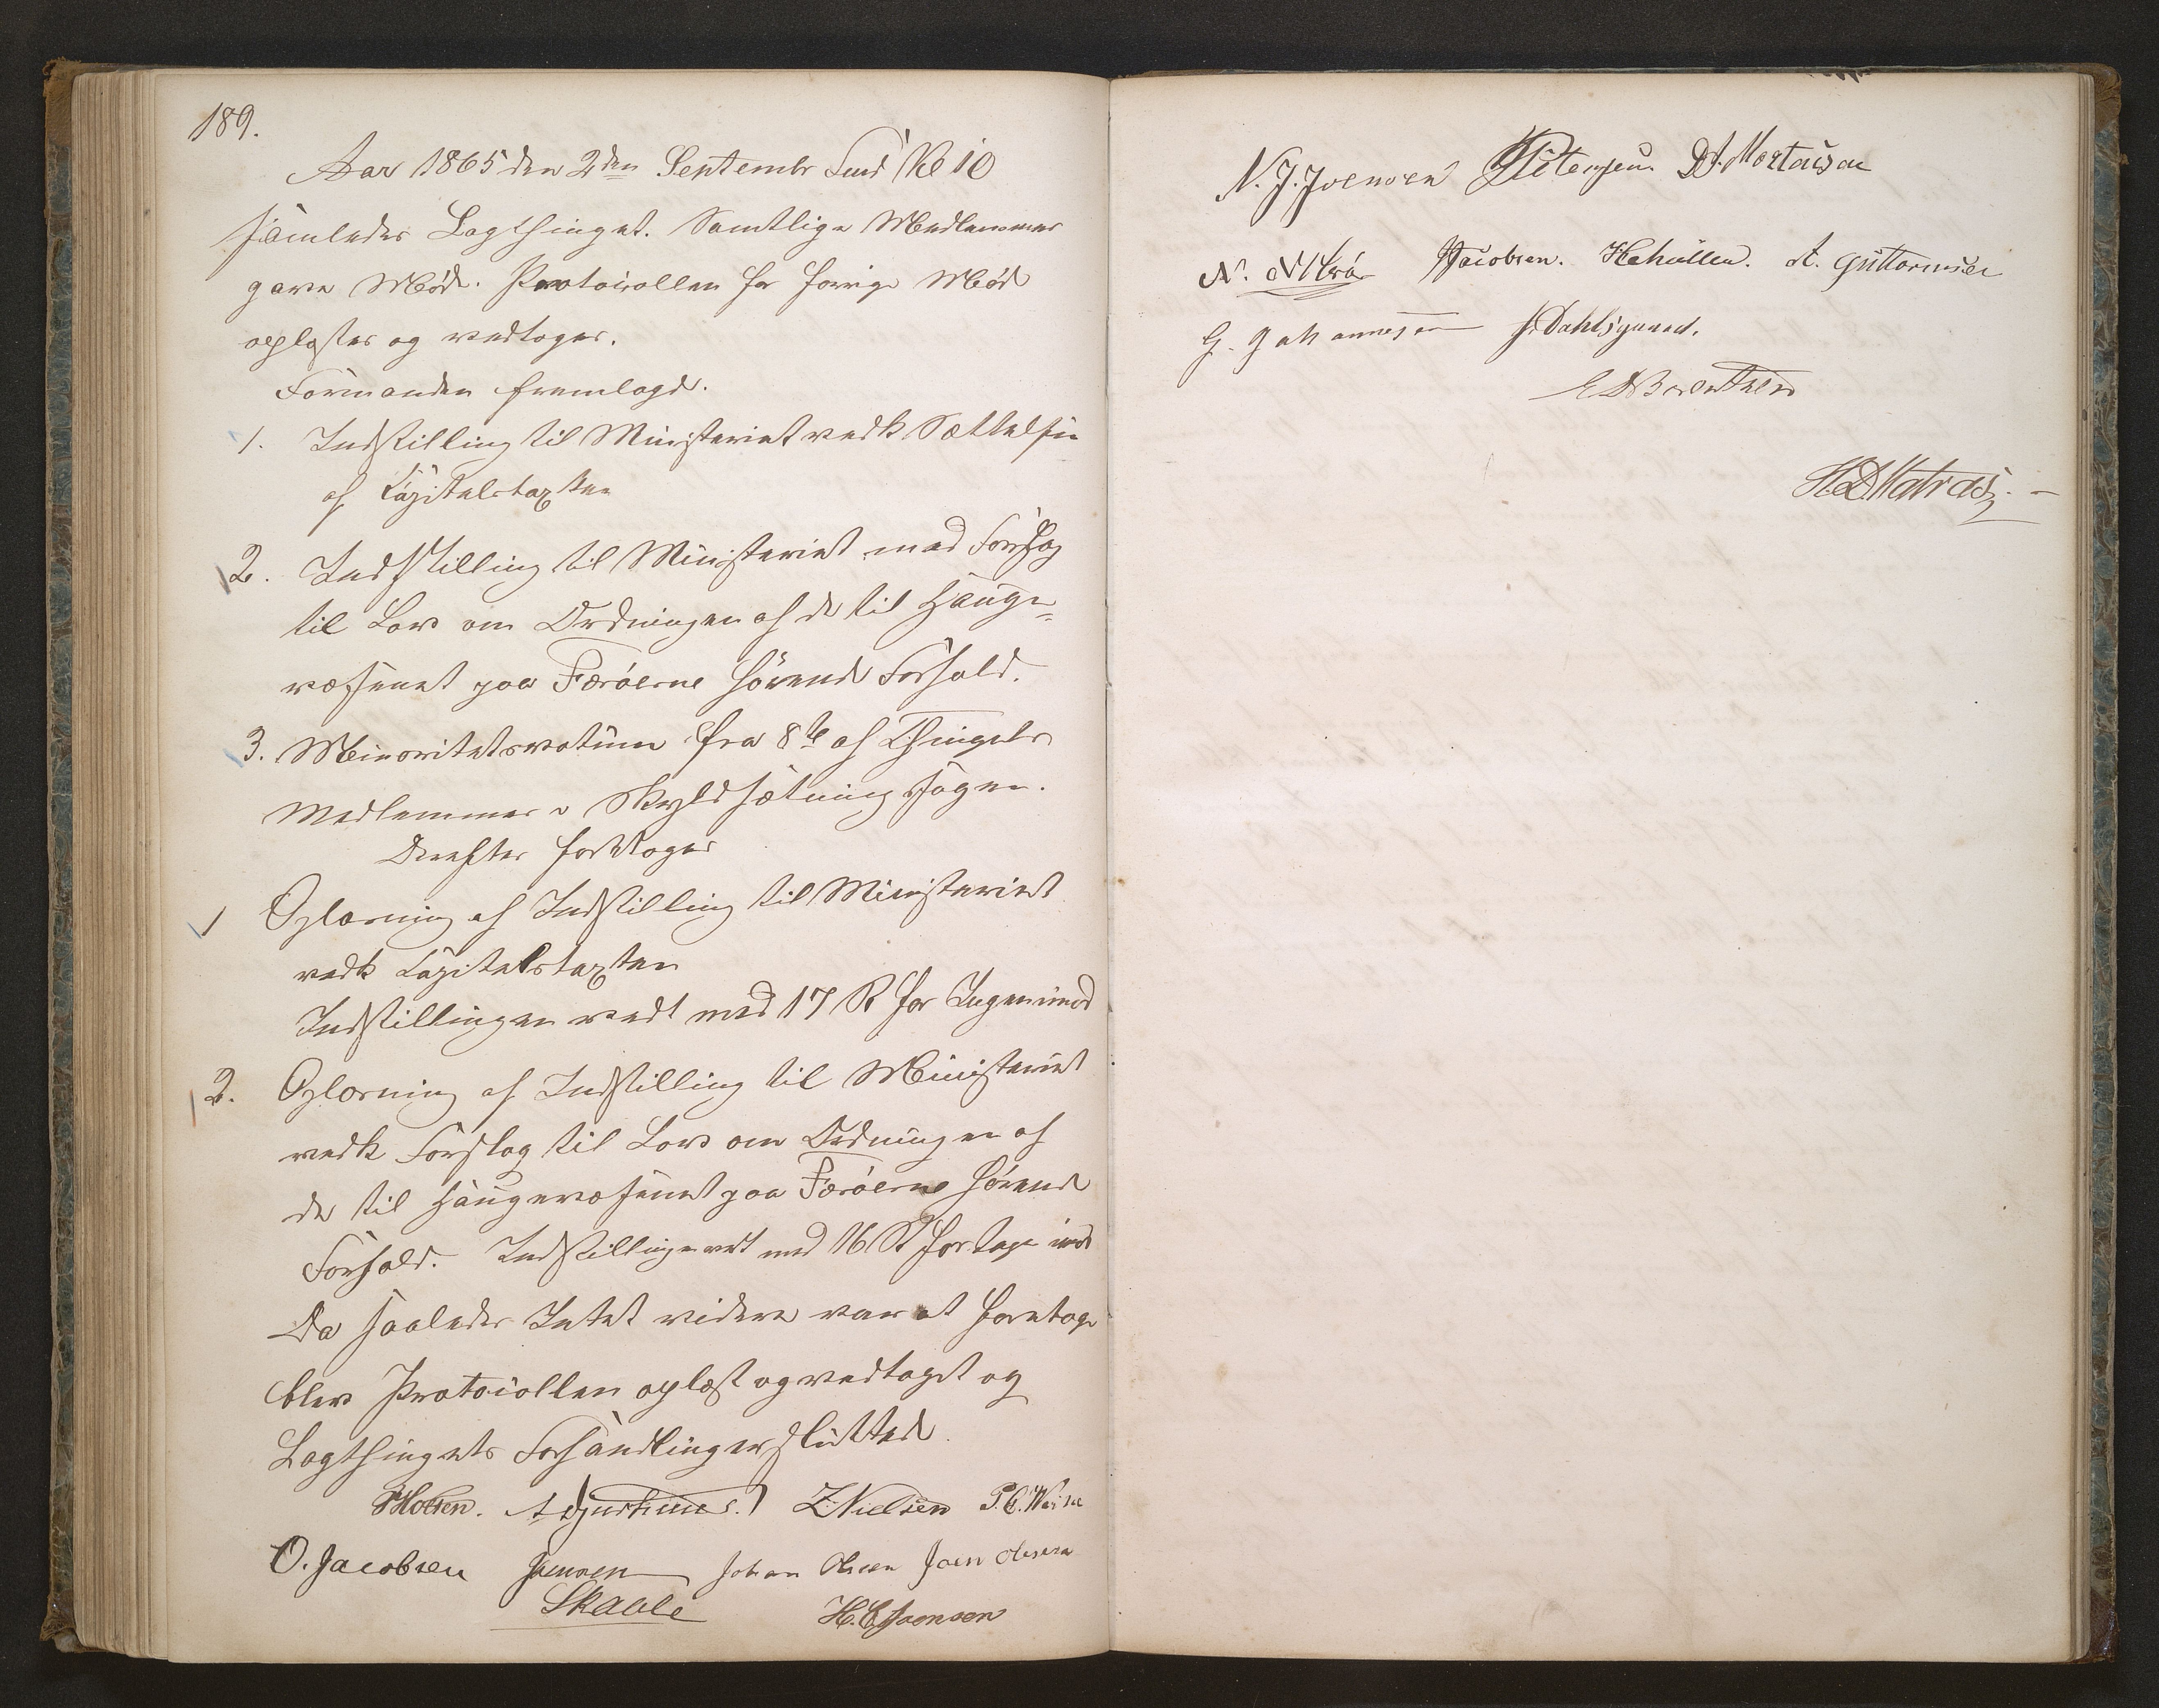 189.
Aar 1865 den 2den Septembr Kl 10
samledes Lagthinget. Samtlige Medlemmer
gave Møde. Protocollen for forrige Møde
oplæstes og vedtoges.
Formanden fremlagde.
1. Indstilling til Ministeriet vedk Sættelsen
af Capitelstaxten
2. Indstilling til Ministeriet med Forslag
til Lov om Ordningen af de til Hauge-
væsenet paa Færöerne hörende Forhold.
3. Minoritetsvotum fra 8te af Thingets
Medlemmer i Skyldsætningssagen.
Derefter foretoges
1 Oplæsning af Indstilling til Ministeriet
vedk Capitelstaxten
Indstillingen vedt med 17 St for Ingen imod
2. Oplæsning af Indstilling til Ministeriet
vedk Forslag til Lov om Ordningen af
de til Haugevæsenet paa Færöerne hörende
Forhold. Indstillingen vedt med 16 St for Ingen imod
Da saaledes Intet videre var at foretage
blev Protocollen oplæst og vedtaget og
Lagthingets Forhandlinger sluttede.
Holten. Z. Nielsen
O. Jacobsen Jensen Johan Olesen Joen Olesen
Skaale H. C. Joensen
N. J. Joensen Petersen D. J. Mortensen
N. Jacobsen. A. Guttormsen
G. Johannesen J. Dahlsgaard.
E D Bærentsen
H D Matras. -